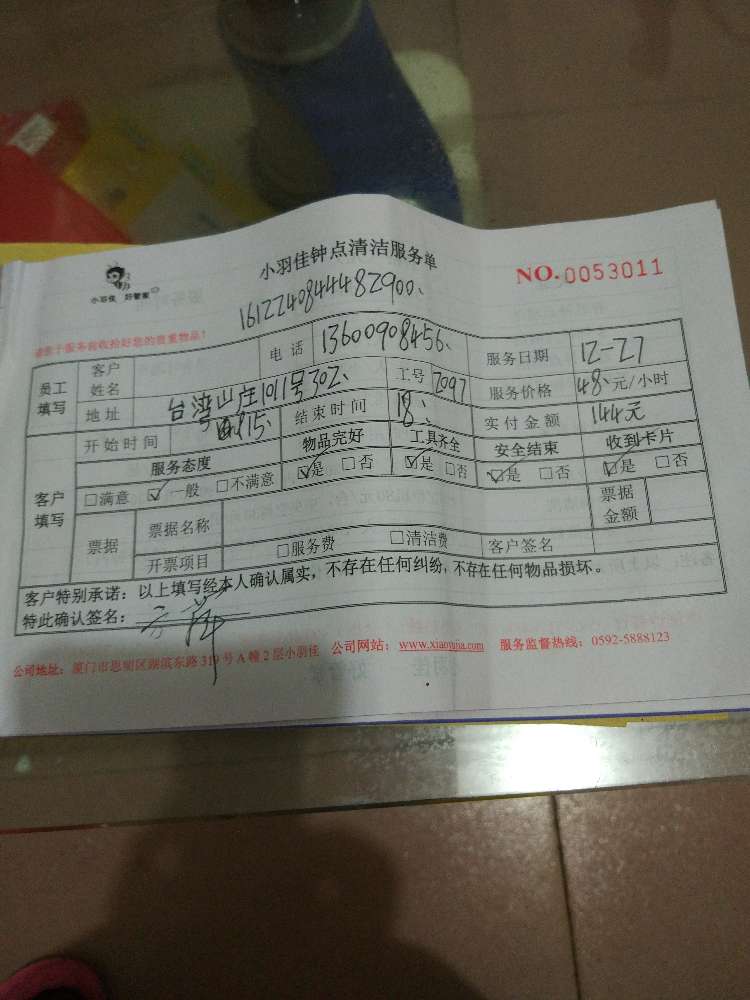 小羽佳钟点清洁服务单
NO.0053011
小羽佳 好管家
161224084448 2900、
请客户服务前收拾好您的贵重物品！
员工填写 客户姓名 电话 13600908456、 服务日期 12-27
地址 台湾山庄1011号302、 工号 2097 服务价格 48、元/小时
开始时间 15、 结束时间 18、 实付金额 144元
客户填写 服务态度 物品完好 工具齐全 安全结束 收到卡片
□满意 ☑一般 □不满意 ☑是 □否 ☑是 □否 ☑是 □否 ☑是 □否
票据 票据名称 票据金额
开票项目 □服务费 □清洁费 客户签名
客户特别承诺：以上填写经本人确认属实，不存在任何纠纷，不存在任何物品损坏。
特此确认签名：
公司地址：厦门市思明区湖滨东路319号A幢2层小羽佳 公司网站：www.xiaoyujia.com 服务监督热线：0592-5888123